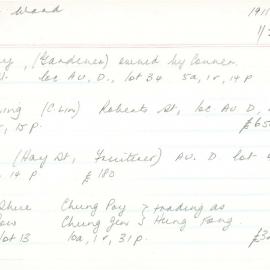 Ward 1911
1/
y, (Gardener) owned by Conner
St. loc AV. D., lot 34 5a, 1r, 14p
ing (C. Lim) Roberts St, loc AV D,
r, 15p. £65
(Hay St, Fruiterer) AV. D lot
14p £180
Shue Chung Poy } trading as
Low Chung Gin } Hung Kong.
lot 13 10a, 1r, 31p. £3